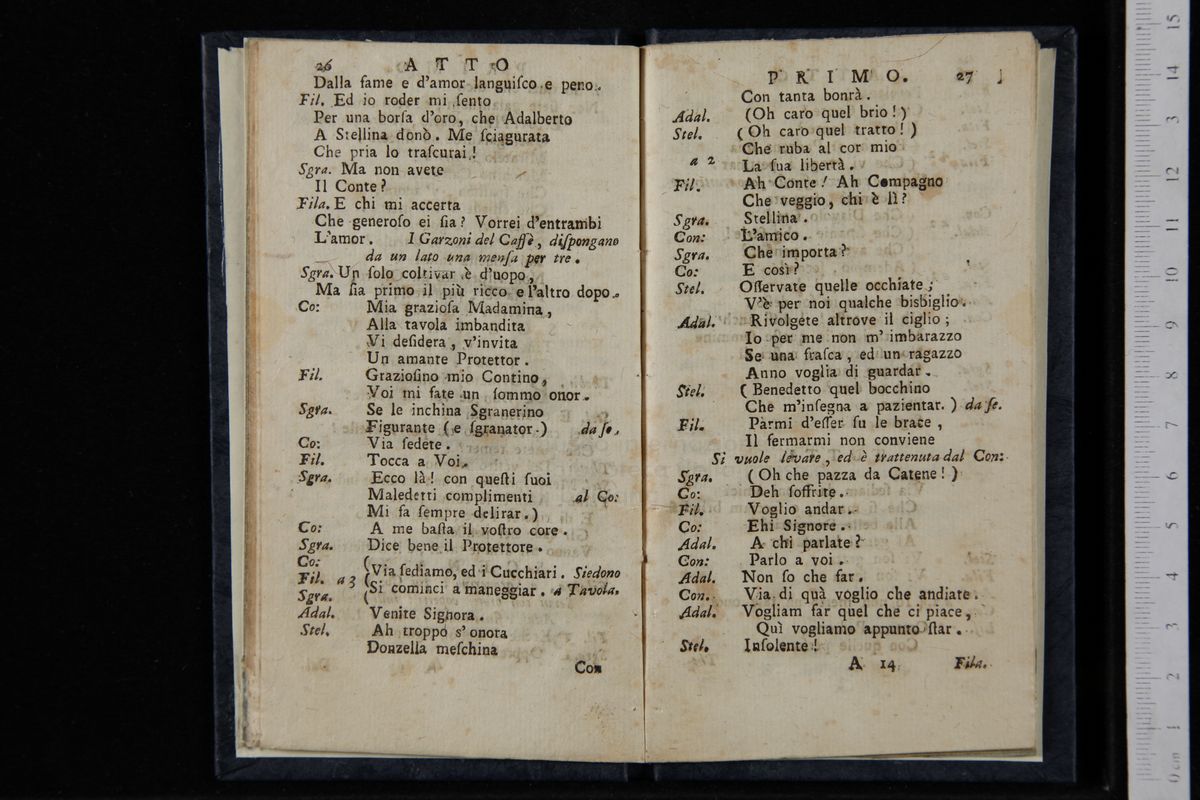 26 A T T O
Dalla fame e d'amor languiſco e peno.
Fil. Ed io roder mi ſento
Per una borſa d'oro, che Adalberto
A Stellina donò. Me ſciagurata
Che pria lo traſcurai!
Sgra. Ma non avete
Il Conte?
Fila. E chi mi accerta
Che generoſo ei ſia? Vorrei d'entrambi
L'amor. I Garzoni del Caffè, diſpongano
da un lato una menſa per tre.
Sgra. Un ſolo coltivar è d'uopo,
Ma ſia primo il più ricco e l'altro dopo.
Co: Mia grazioſa Madamina,
Alla tavola imbandita
Vi deſidera, v'invita
Un amante Protettor.
Fil. Grazioſino mio Contino,
Voi mi fate un ſommo onor.
Sgra. Se le inchina Sgranerino
Figurante (e ſgranator.) da ſe,
Co: Via ſedete.
Fil. Tocca a Voi.
Sgra. Ecco là! con queſti ſuoi
Maledetti complimenti al Co:
Mi fa ſempre delirar.)
Co: A me baſta il voſtro core.
Sgra. Dice bene il Protettore.
Co:
Fil. a 3 (Via ſediamo, ed i Cucchiari. Siedono
Sgra. (Si cominci a maneggiar. a Tavola.
Adal. Venite Signora.
Stel. Ah troppo s'onora
Donzella meſchina
Con
P R I M O. 27
Con tanta bonrà.
Adal. (Oh caro quel brio!)
Stel. (Oh caro quel tratto!)
Che ruba al cor mio
a 2 La ſua libertà.
Fil. Ah Conte! Ah Compagno
Che veggio, chi è lì?
Sgra. Stellina.
Con: L'amico.
Sgra. Che importa?
Co: E così?
Stel. Oſſervate quelle occhiate;
V'è per noi qualche bisbiglio.
Adal. Rivolgete altrove il ciglio;
Io per me non m' imbarazzo
Se una fraſca, ed un ragazzo
Anno voglia di guardar.
Stel. (Benedetto quel bocchino
Che m'inſegna a pazientar.) da ſe.
Fil. Parmi d'eſſer ſu le brace,
Il fermarmi non conviene
Si vuole levare, ed è trattenuta dal Con:
Sgra. (Oh che pazza da Catene!)
Co: Deh ſoffrite.
Fil. Voglio andar.
Co: Ehi Signore.
Adal. A chi parlate?
Con: Parlo a voi.
Adal. Non ſo che far.
Con. Via di quà voglio che andiate.
Adal. Vogliam far quel che ci piace,
Quì vogliamo appunto ſtar.
Stel. Inſolente!
A 14 Fila.
15
14
13
12
11
10
9
8
7
6
5
4
3
2
1
0 cm